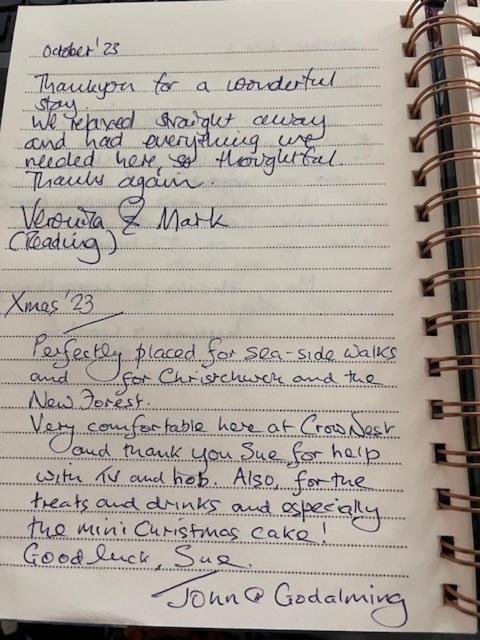 October '23
Thankyou for a wonderful
stay.
We relaxed straight away
and had everything we
needed here, so thoughtful.
Thanks again.
Veronica & Mark
(Reading)
Xmas '23
Perfectly placed for sea-side walks
and for Christchurch and the
New Forest.
Very comfortable here at Crow Nest
and thank you Sue for help
with TV and hob. Also, for the
treats and drinks and especially
the mini Christmas cake!
Good luck, Sue.
John @ Godalming